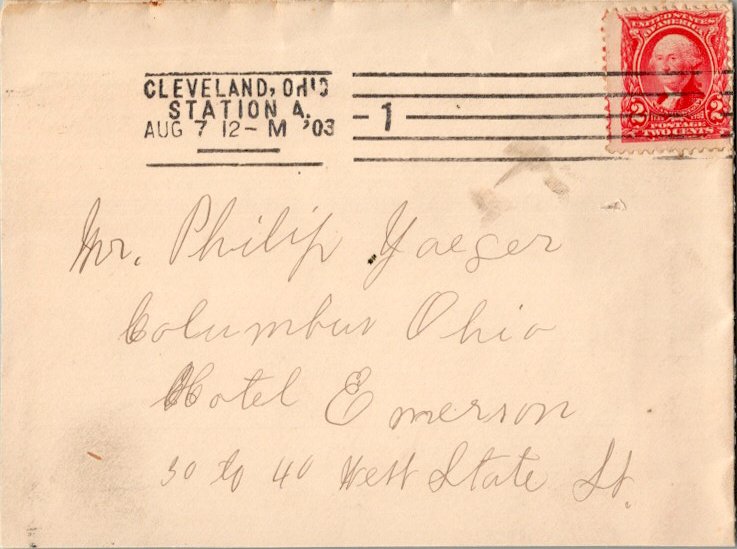 UNITED STATES
OF AMERICA
2 2
POSTAGE
TWO CENTS
CLEVELAND, OHIO
STATION A.
AUG 7 12-M '03
1
Mr. Philip Yaeger
Columbus Ohio
Hotel Emerson
30 to 40 West State St.